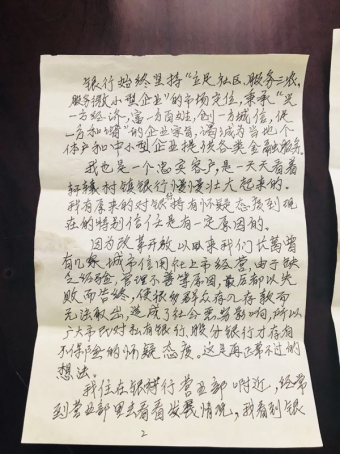 银行始终坚持“立足社区、服务三农、
服务微小型企业”的市场定位,秉承“兴
一方经济,富一方百姓,创一方诚信,促
一方和谐”的企业宗旨,竭诚为当地个
体户和中小型企业提供各类金融服务。
我也是一个忠实客户,是一天天看着
轩辕村镇银行慢慢壮大起来的。
我有原来的对银行持有怀疑态度到现
在的特别信任是有一定原因的。
因为改革开放以来我们长葛曾
有几家城市信用社上市经营,由于缺
乏经验,管理不善等原因,最后都以失
败而告终,使很多群众存几存款而
无法取出,造成了社会恶劣影响,所以
广大市民对私有银行、股份银行才存有
不保险的怀疑态度。这是再正常不过的
想法。
我住在银行营业部附近,经常
到营业部里去看看发展情况,我看到银
2